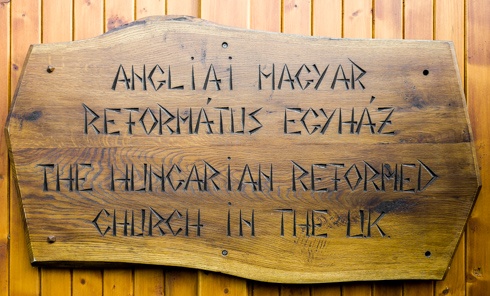 ANGLIAI MAGYAR
REFORMÁTUS EGYHÁZ
THE HUNGARIAN REFORMED
CHURCH IN THE UK